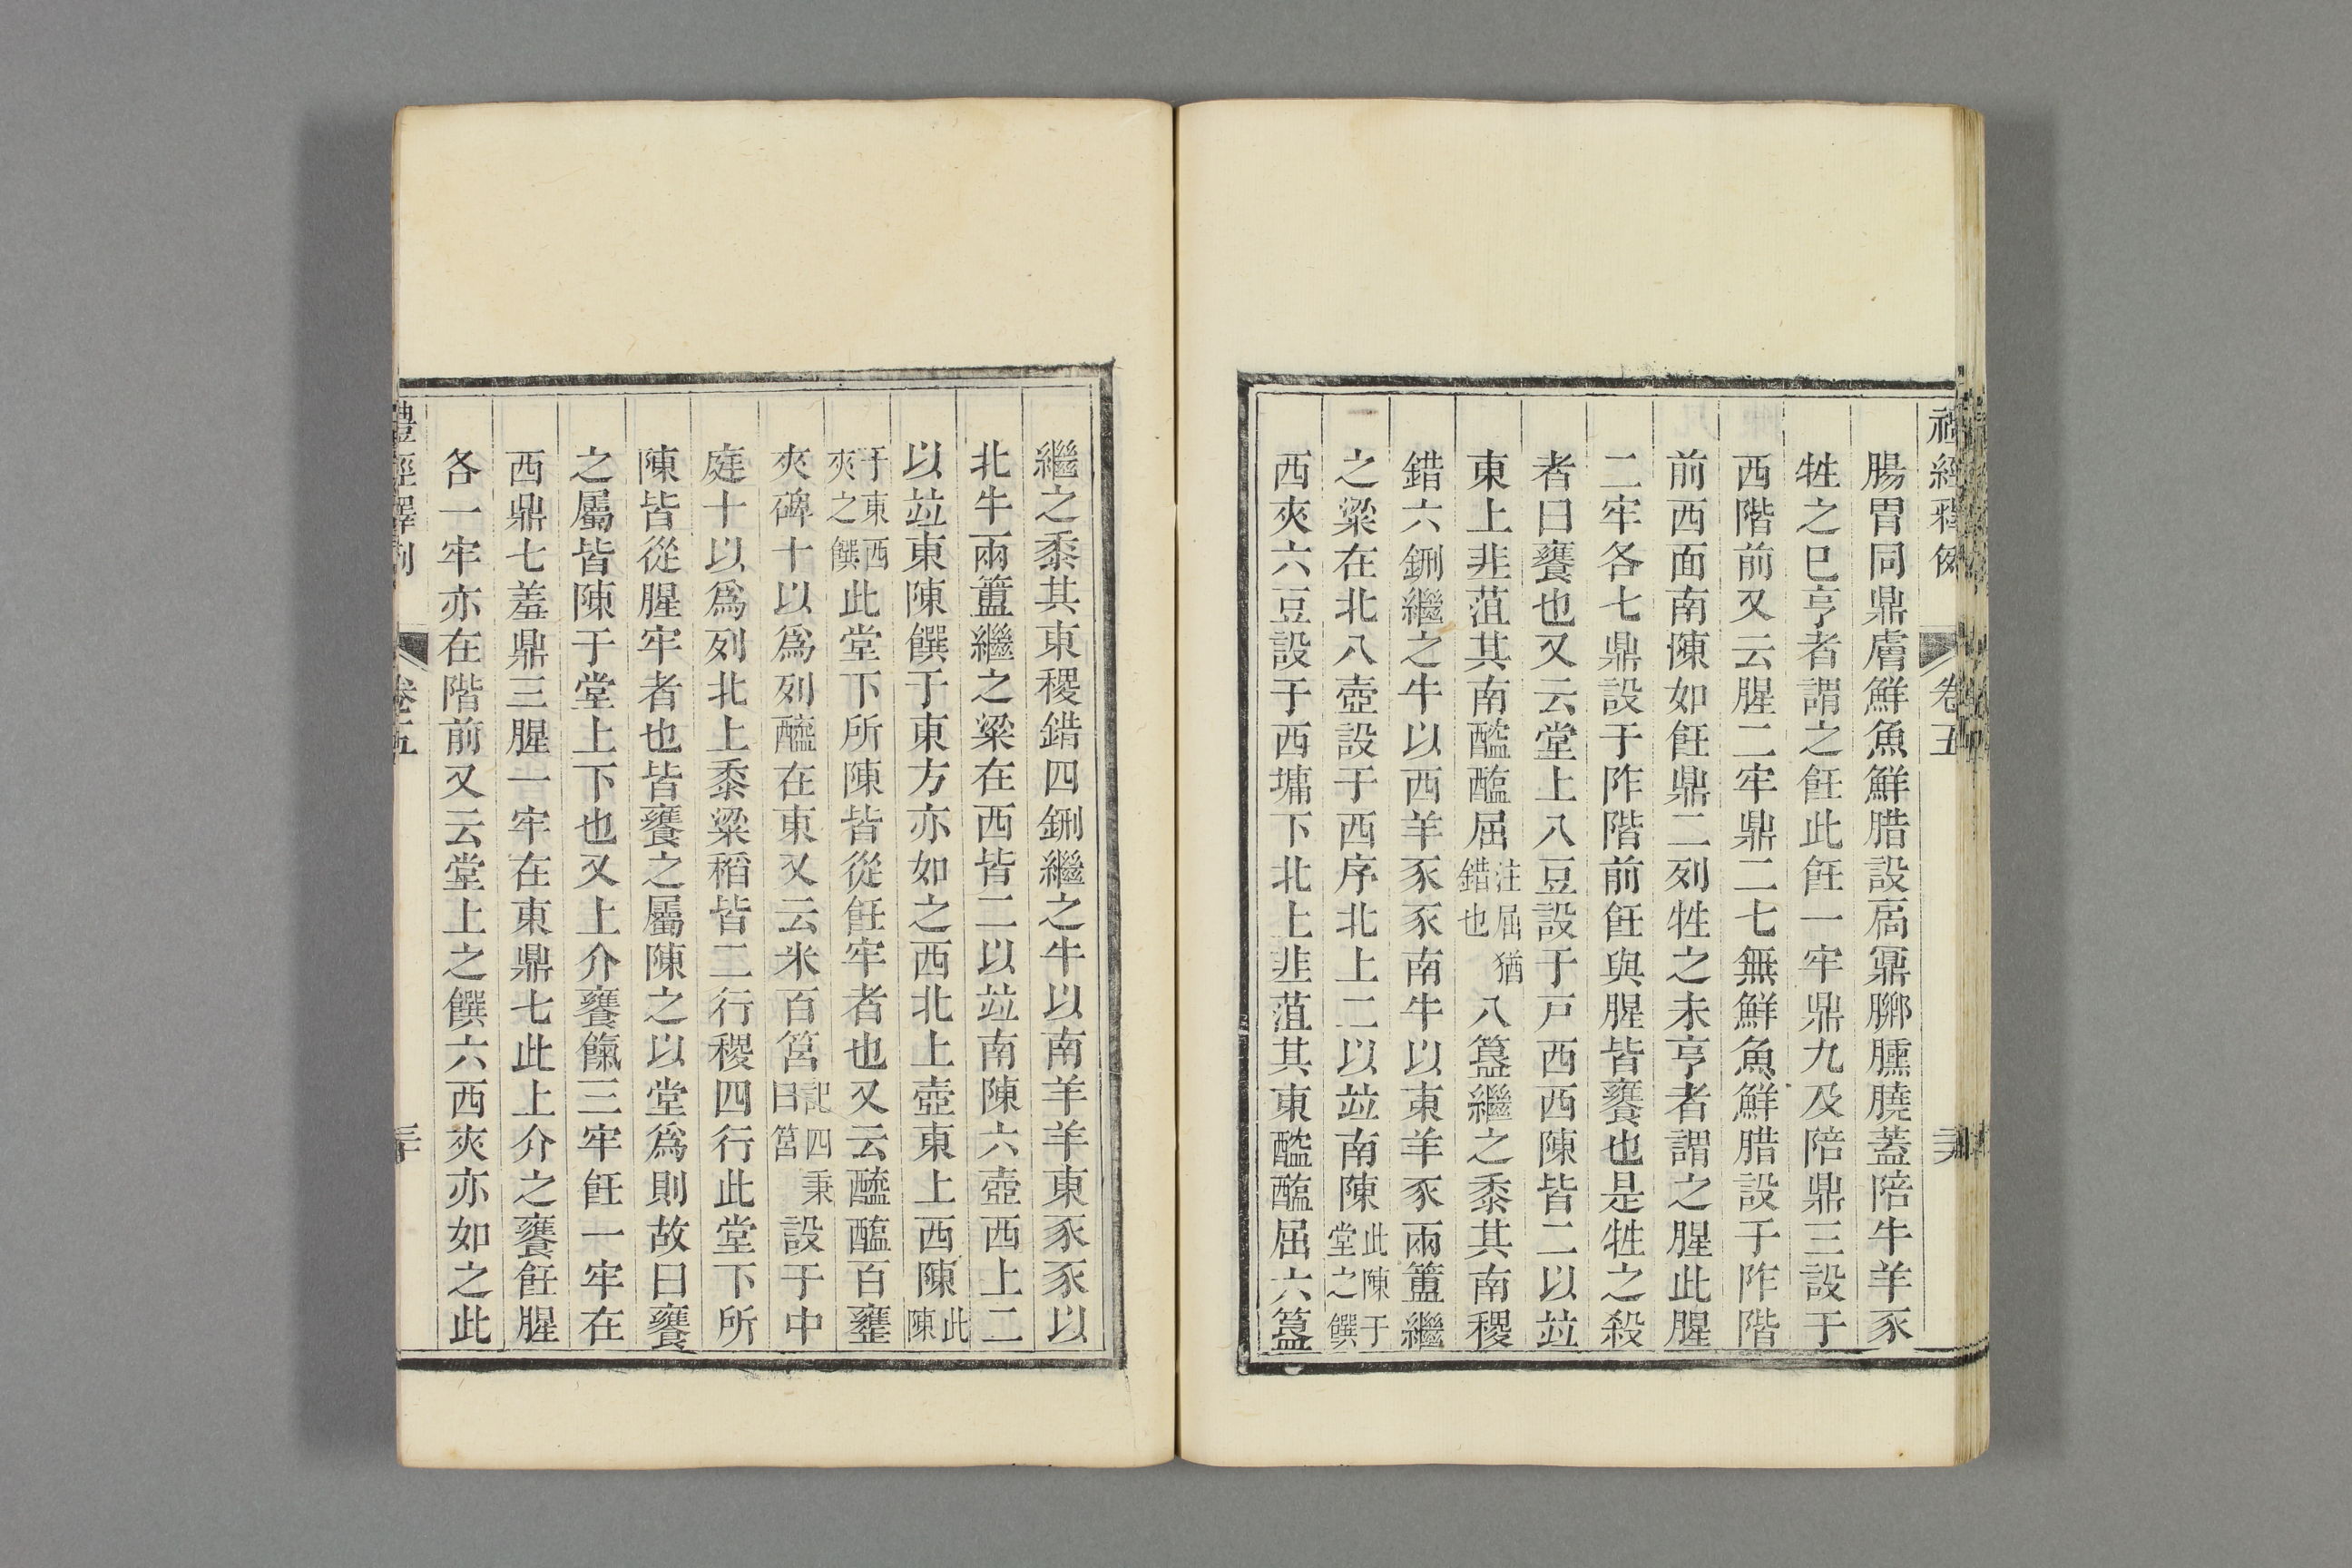 腸胃同鼎膚鮮魚鮮腊設扃鼏膷臐膮蓋陪牛羊豕
牲之巳亨者謂之飪此飪一牢鼎九及陪鼎三設于
西階前又云腥二牢鼎二七無鮮魚鮮腊設于阼階
前西面南陳如飪鼎二列牲之未亨者謂之腥此腥
二牢各七鼎設于阼階前飪與腥皆饔也是牲之殺
者曰饔也又云堂上八豆設于戸西西陳皆二以竝
東上韭菹其南醓醢屈注屈猶錯也八簋繼之黍其南稷
錯六鉶繼之牛以西羊豕豕南牛以東羊豕兩簠繼
之粱在北八壺設于西序北上二以竝南陳此陳于堂之饌
西夾六豆設于西墉下北上韭菹其東醓醢屈六簋
繼之黍其東稷錯四鉶繼之牛以南羊羊東豕豕以
北牛兩簠繼之粱在西皆二以竝南陳六壺西上二
以竝東陳饌于東方亦如之西北上壺東上西陳此陳
于東西夾之饌此堂下所陳皆從飪牢者也又云醯醢百罋
夾碑十以爲列醯在東又云米百筥記四秉曰筥設于中
庭十以爲列北上黍粱稻皆二行稷四行此堂下所
陳皆從腥牢者也皆饔之屬陳之以堂爲則故曰饔
之屬皆陳于堂上下也又上介饔餼三牢飪一牢在
西鼎七羞鼎三腥一牢在東鼎七此上介之饔飪腥
各一牢亦在階前又云堂上之饌六西夾亦如之此
禮經釋例
卷五